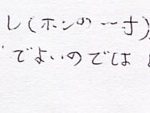 し(ホンの一寸)
でよいのでは